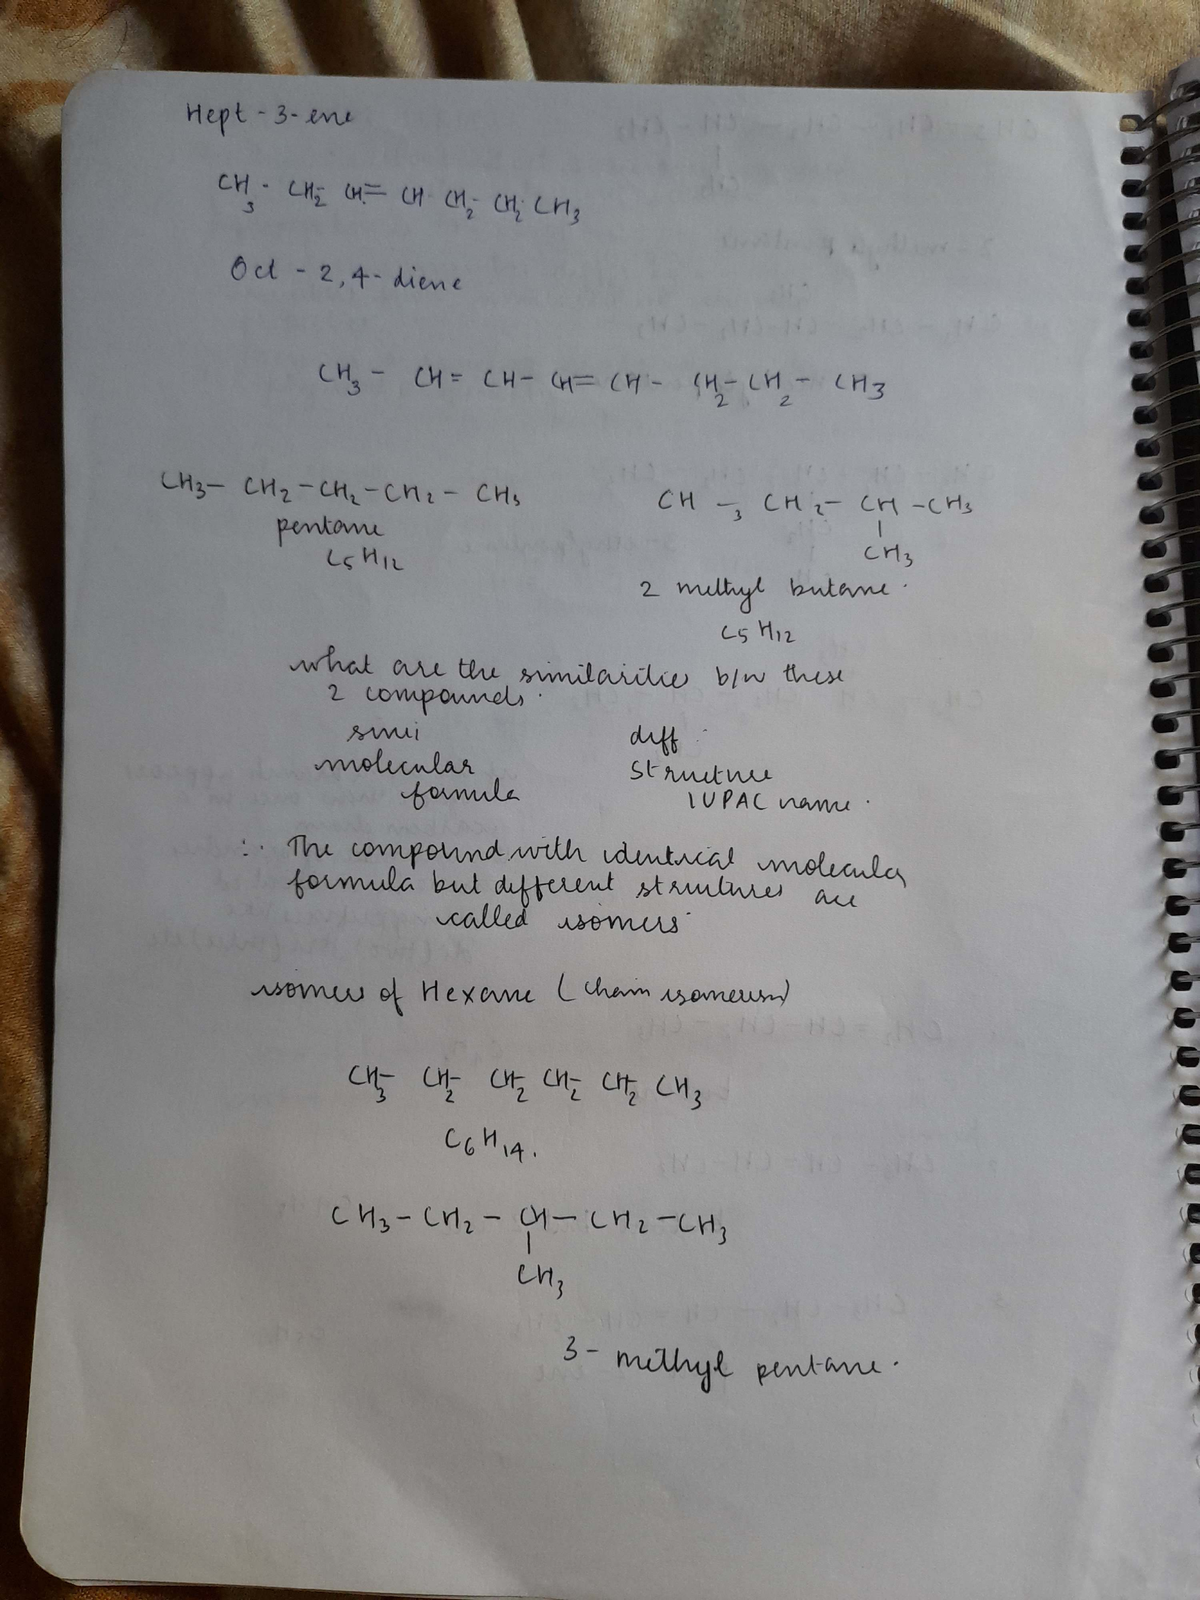 Hept - 3 - ene
CH3 - CH2 - CH = CH - CH2 - CH2 - CH3
Oct - 2,4 - diene
CH3 - CH = CH - CH = CH - CH2 - CH2 - CH3
CH3 - CH2 - CH2 - CH2 - CH3
pentane
C5H12
CH3 - CH2 - CH - CH3
|
CH3
2 methyl butane .
C5H12
what are the similaritie b/w these
2 compounds .
simi
molecular
formula
diff
structure
IUPAC name .
∴ The compound with identical molecular
formula but different structures are
called isomers
isomers of Hexane (chain isomerism)
CH3 - CH2 - CH2 - CH2 - CH2 - CH3
C6H14.
CH3 - CH2 - CH - CH2 - CH3
|
CH3
3 - methyl pentane .